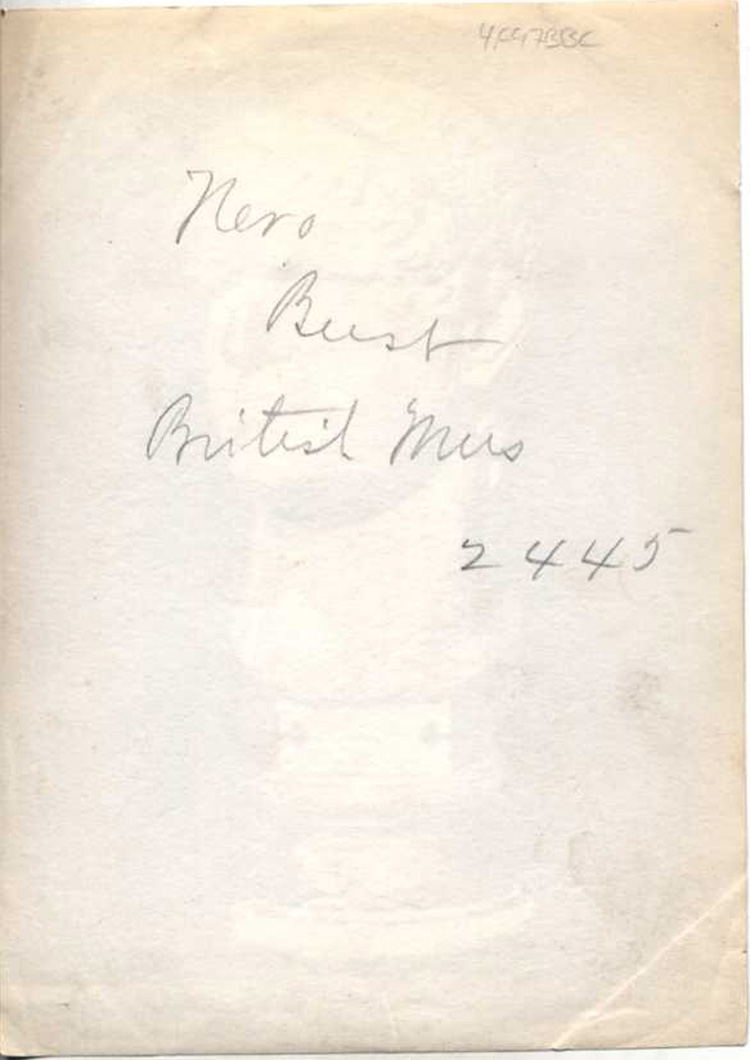 Nero
Bust
British Mus
2445